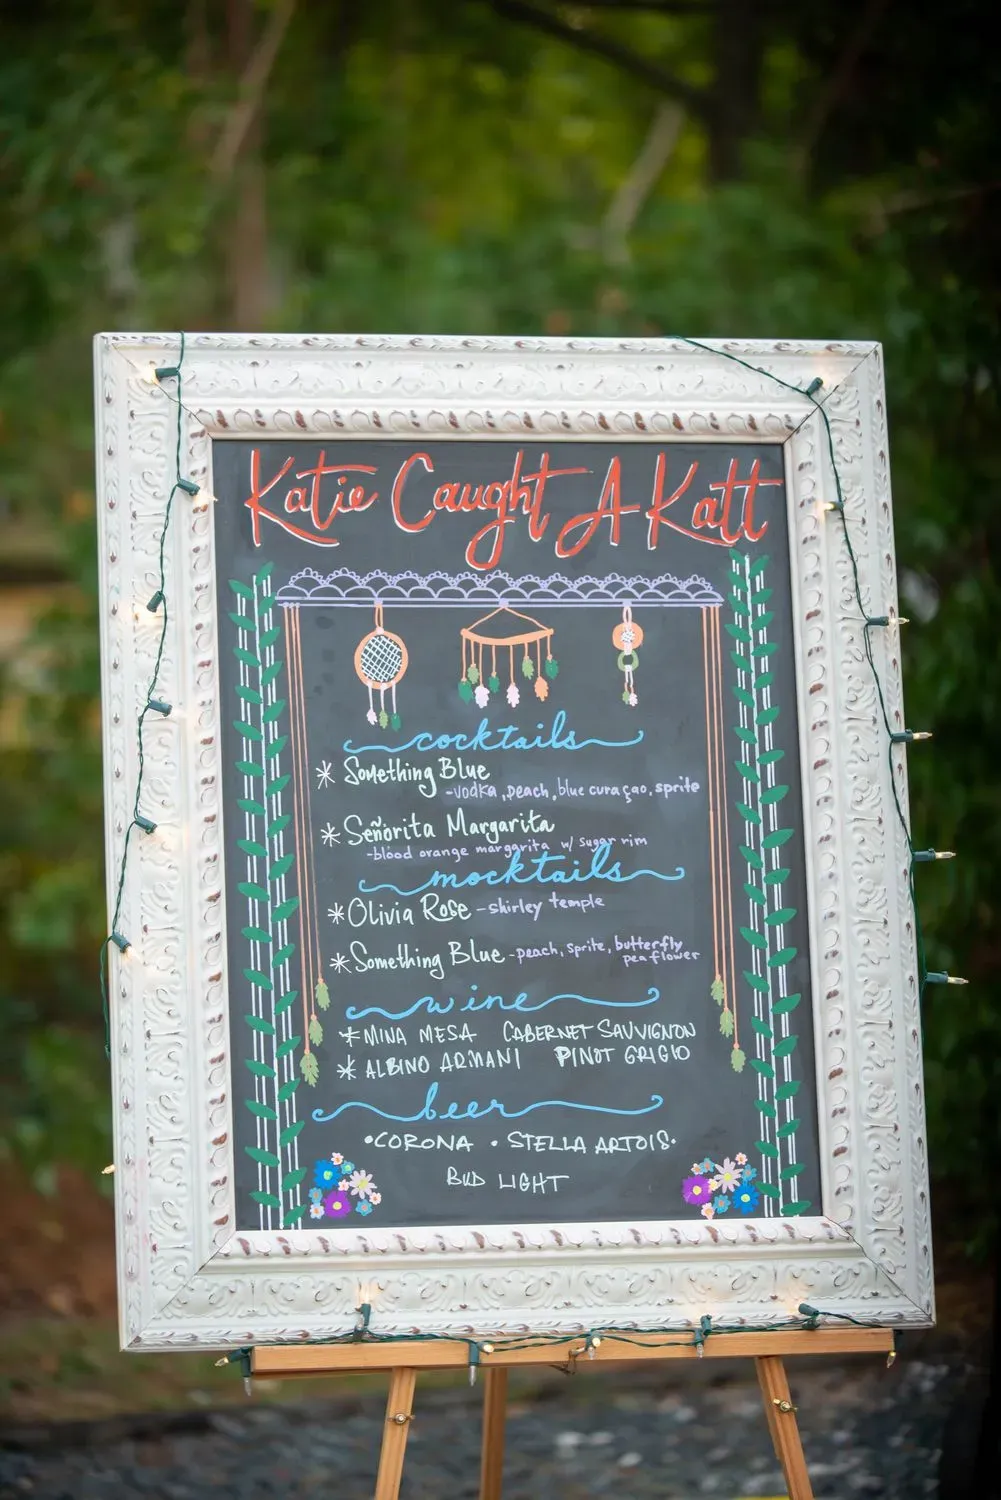 Katie Caught A Katt
cocktails
* Something Blue
-vodka, peach, blue curaçao, sprite
* Señorita Margarita
-blood orange margarita w/ sugar rim
mocktails
* Olivia Rose -shirley temple
* Something Blue -peach, sprite, butterfly
pea flower
wine
* MINA MESA CABERNET SAUVIGNON
* ALBINO ARMANI PINOT GRIGIO
beer
•CORONA • STELLA ARTOIS•
BUD LIGHT